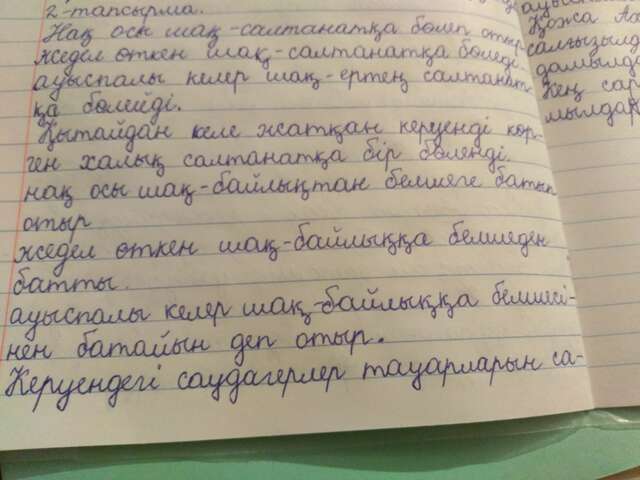 2-тапсырма.
Нақ осы шақ-салтанатқа бөлеп отыр
жедел өткен шақ-салтанатқа бөледі
ауыспалы келер шақ-ертең салтанат-
қа бөлейді.
Қытайдан келе жатқан керуенді көр-
ген халық салтанатқа бір бөленді.
нақ осы шақ-байлықтан белшеге батып
отыр
жедел өткен шақ-байлыққа белшеден
батты.
ауыспалы келер шақ-байлыққа белшесі-
нен батайын деп отыр.
Керуендегі саудагерлер тауарларын са-
Қожа
салғызыл
дамылда
Кең сар
мылдар